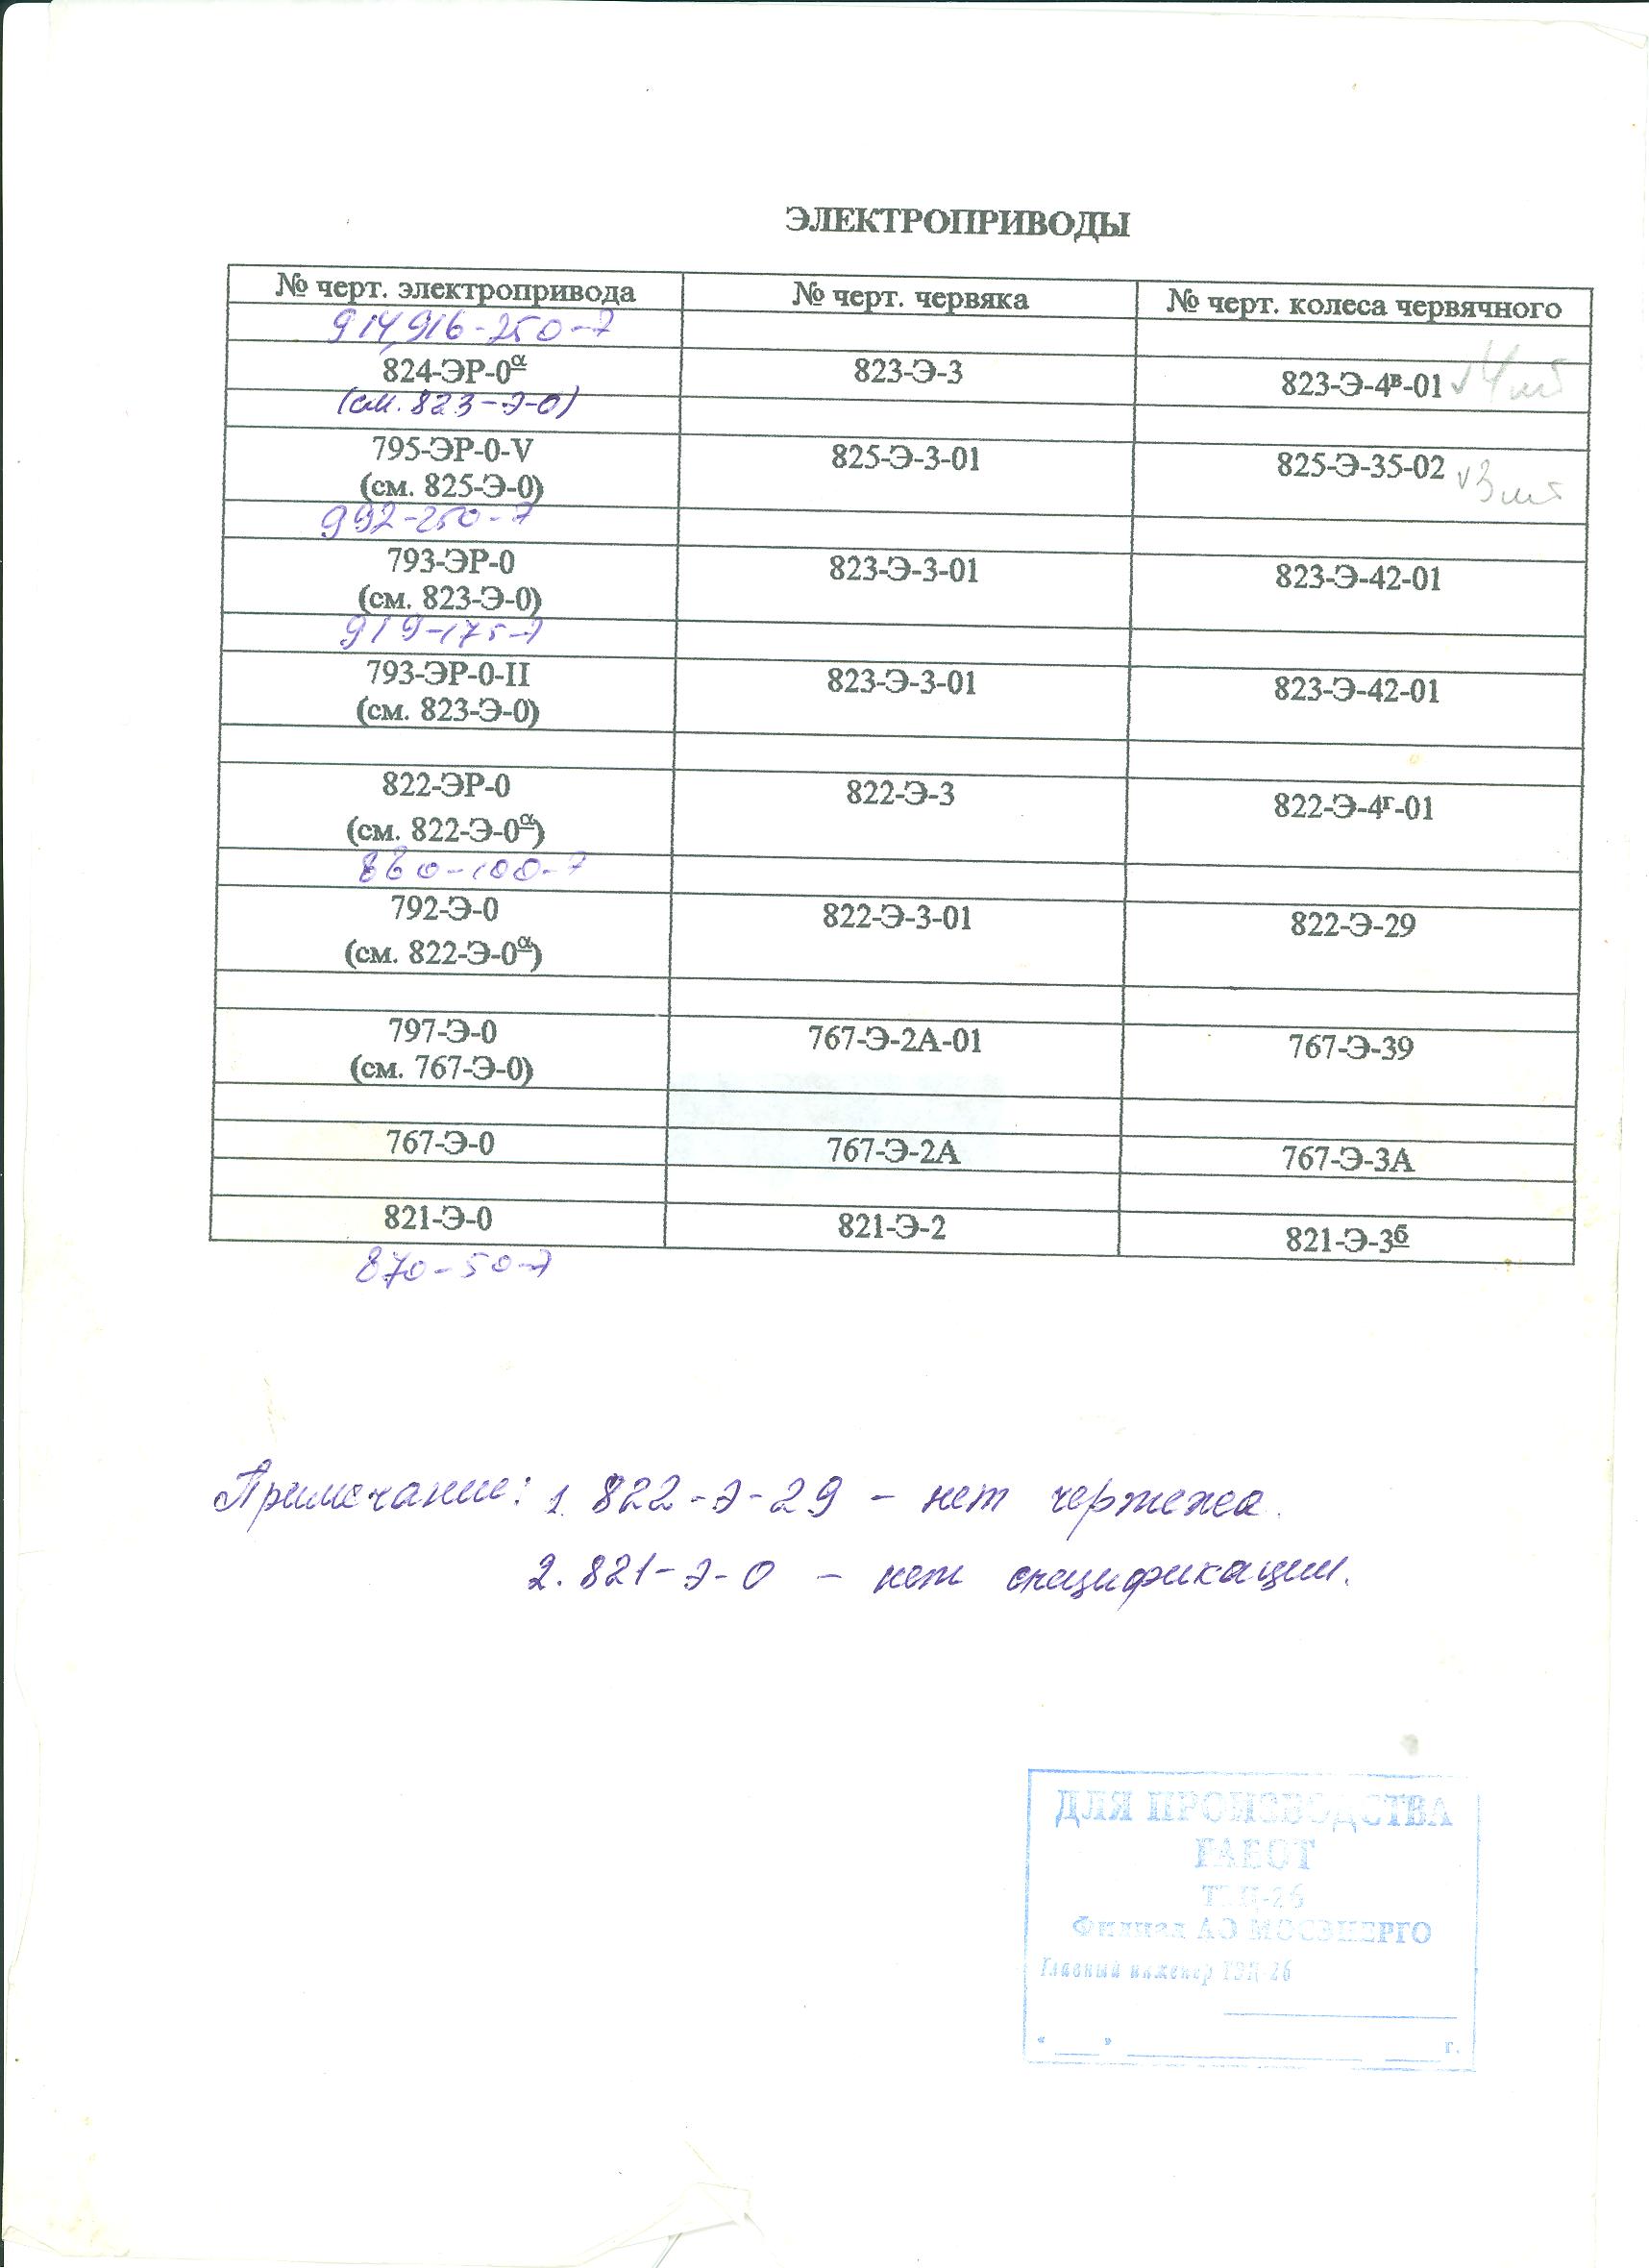 ЭЛЕКТРОПРИВОДЫ
№ черт. электропривода № черт. червяка № черт. колеса червячного
914,916-250-7
824-ЭР-0α 823-Э-3 823-Э-4в-01 √4шт
(см. 823-Э-0)
795-ЭР-0-V 825-Э-3-01 825-Э-35-02 √3шт
(см. 825-Э-0)
992-250-7
793-ЭР-0 823-Э-3-01 823-Э-42-01
(см. 823-Э-0)
919-175-7
793-ЭР-0-II 823-Э-3-01 823-Э-42-01
(см. 823-Э-0)
822-ЭР-0 822-Э-3 822-Э-4г-01
(см. 822-Э-0α)
860-100-7
792-Э-0 822-Э-3-01 822-Э-29
(см. 822-Э-0α)
797-Э-0 767-Э-2А-01 767-Э-39
(см. 767-Э-0)
767-Э-0 767-Э-2А 767-Э-3А
821-Э-0 821-Э-2 821-Э-3б
870-50-7
Примечание: 1. 822-Э-29 – нет чертежа.
2. 821-Э-0 – нет спецификации.
ДЛЯ ПРОИЗВОДСТВА
РАБОТ
ТЭЦ-26
Филиал АО МОСЭНЕРГО
Главный инженер ТЭЦ-26
"___" ____________ ____ г.